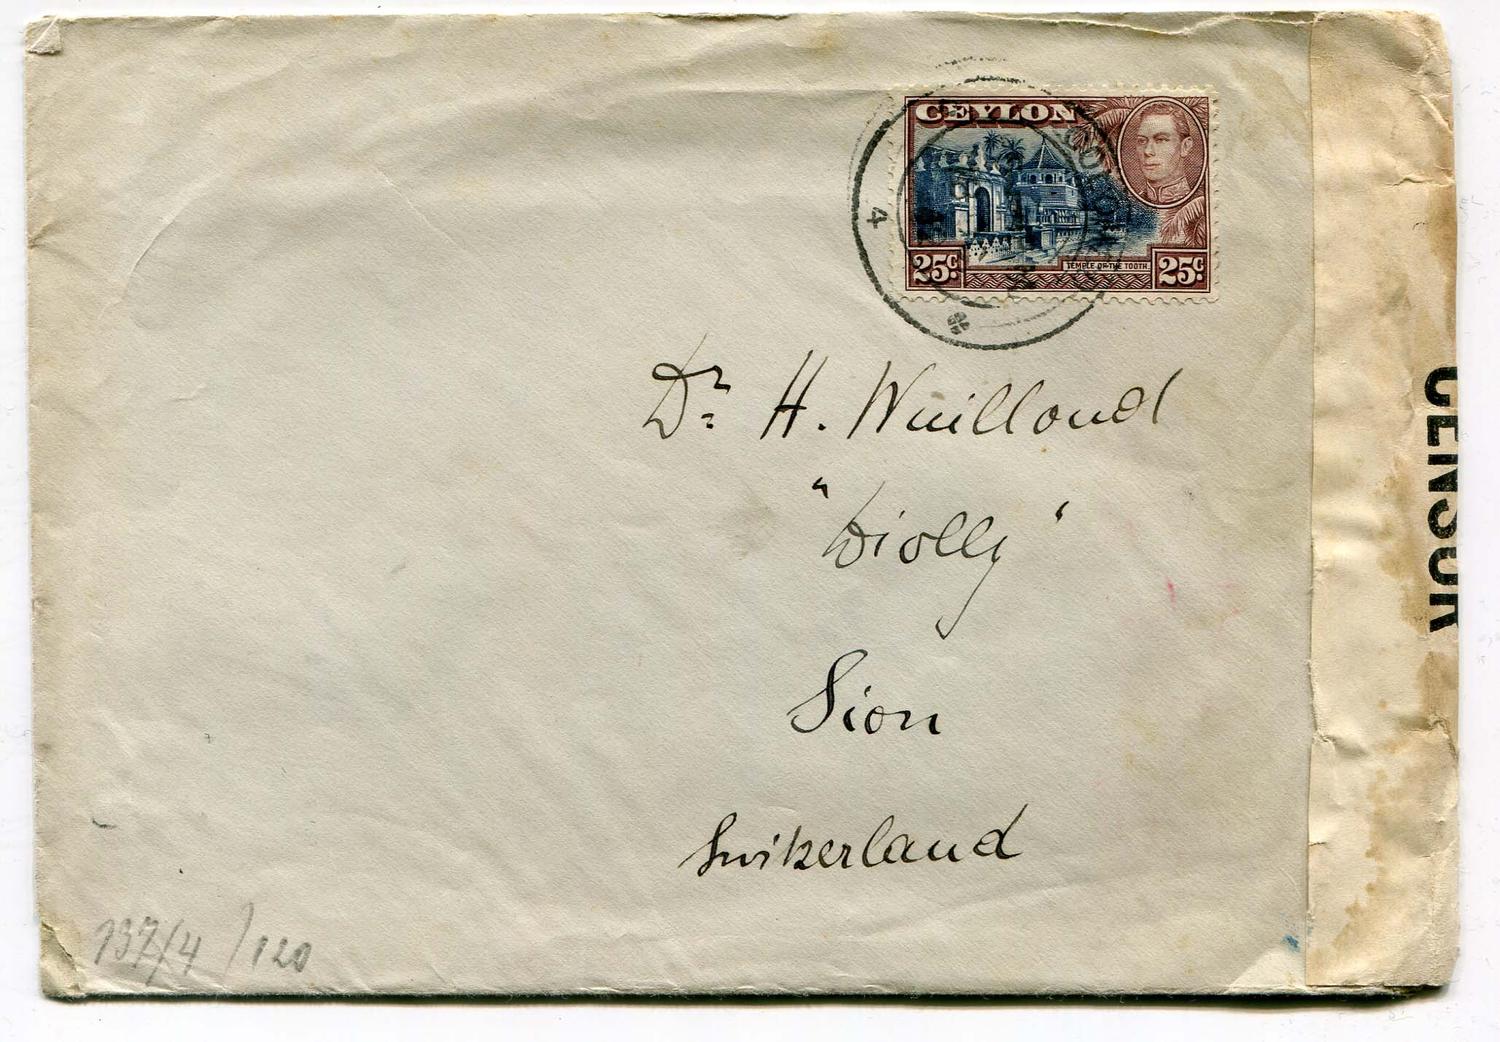 CEYLON
25c. TEMPLE OF THE TOOTH 25c.
4
Dr. H. Wuilloud
"Diolly"
Sion
Switzerland
CENSOR
137/4 /120